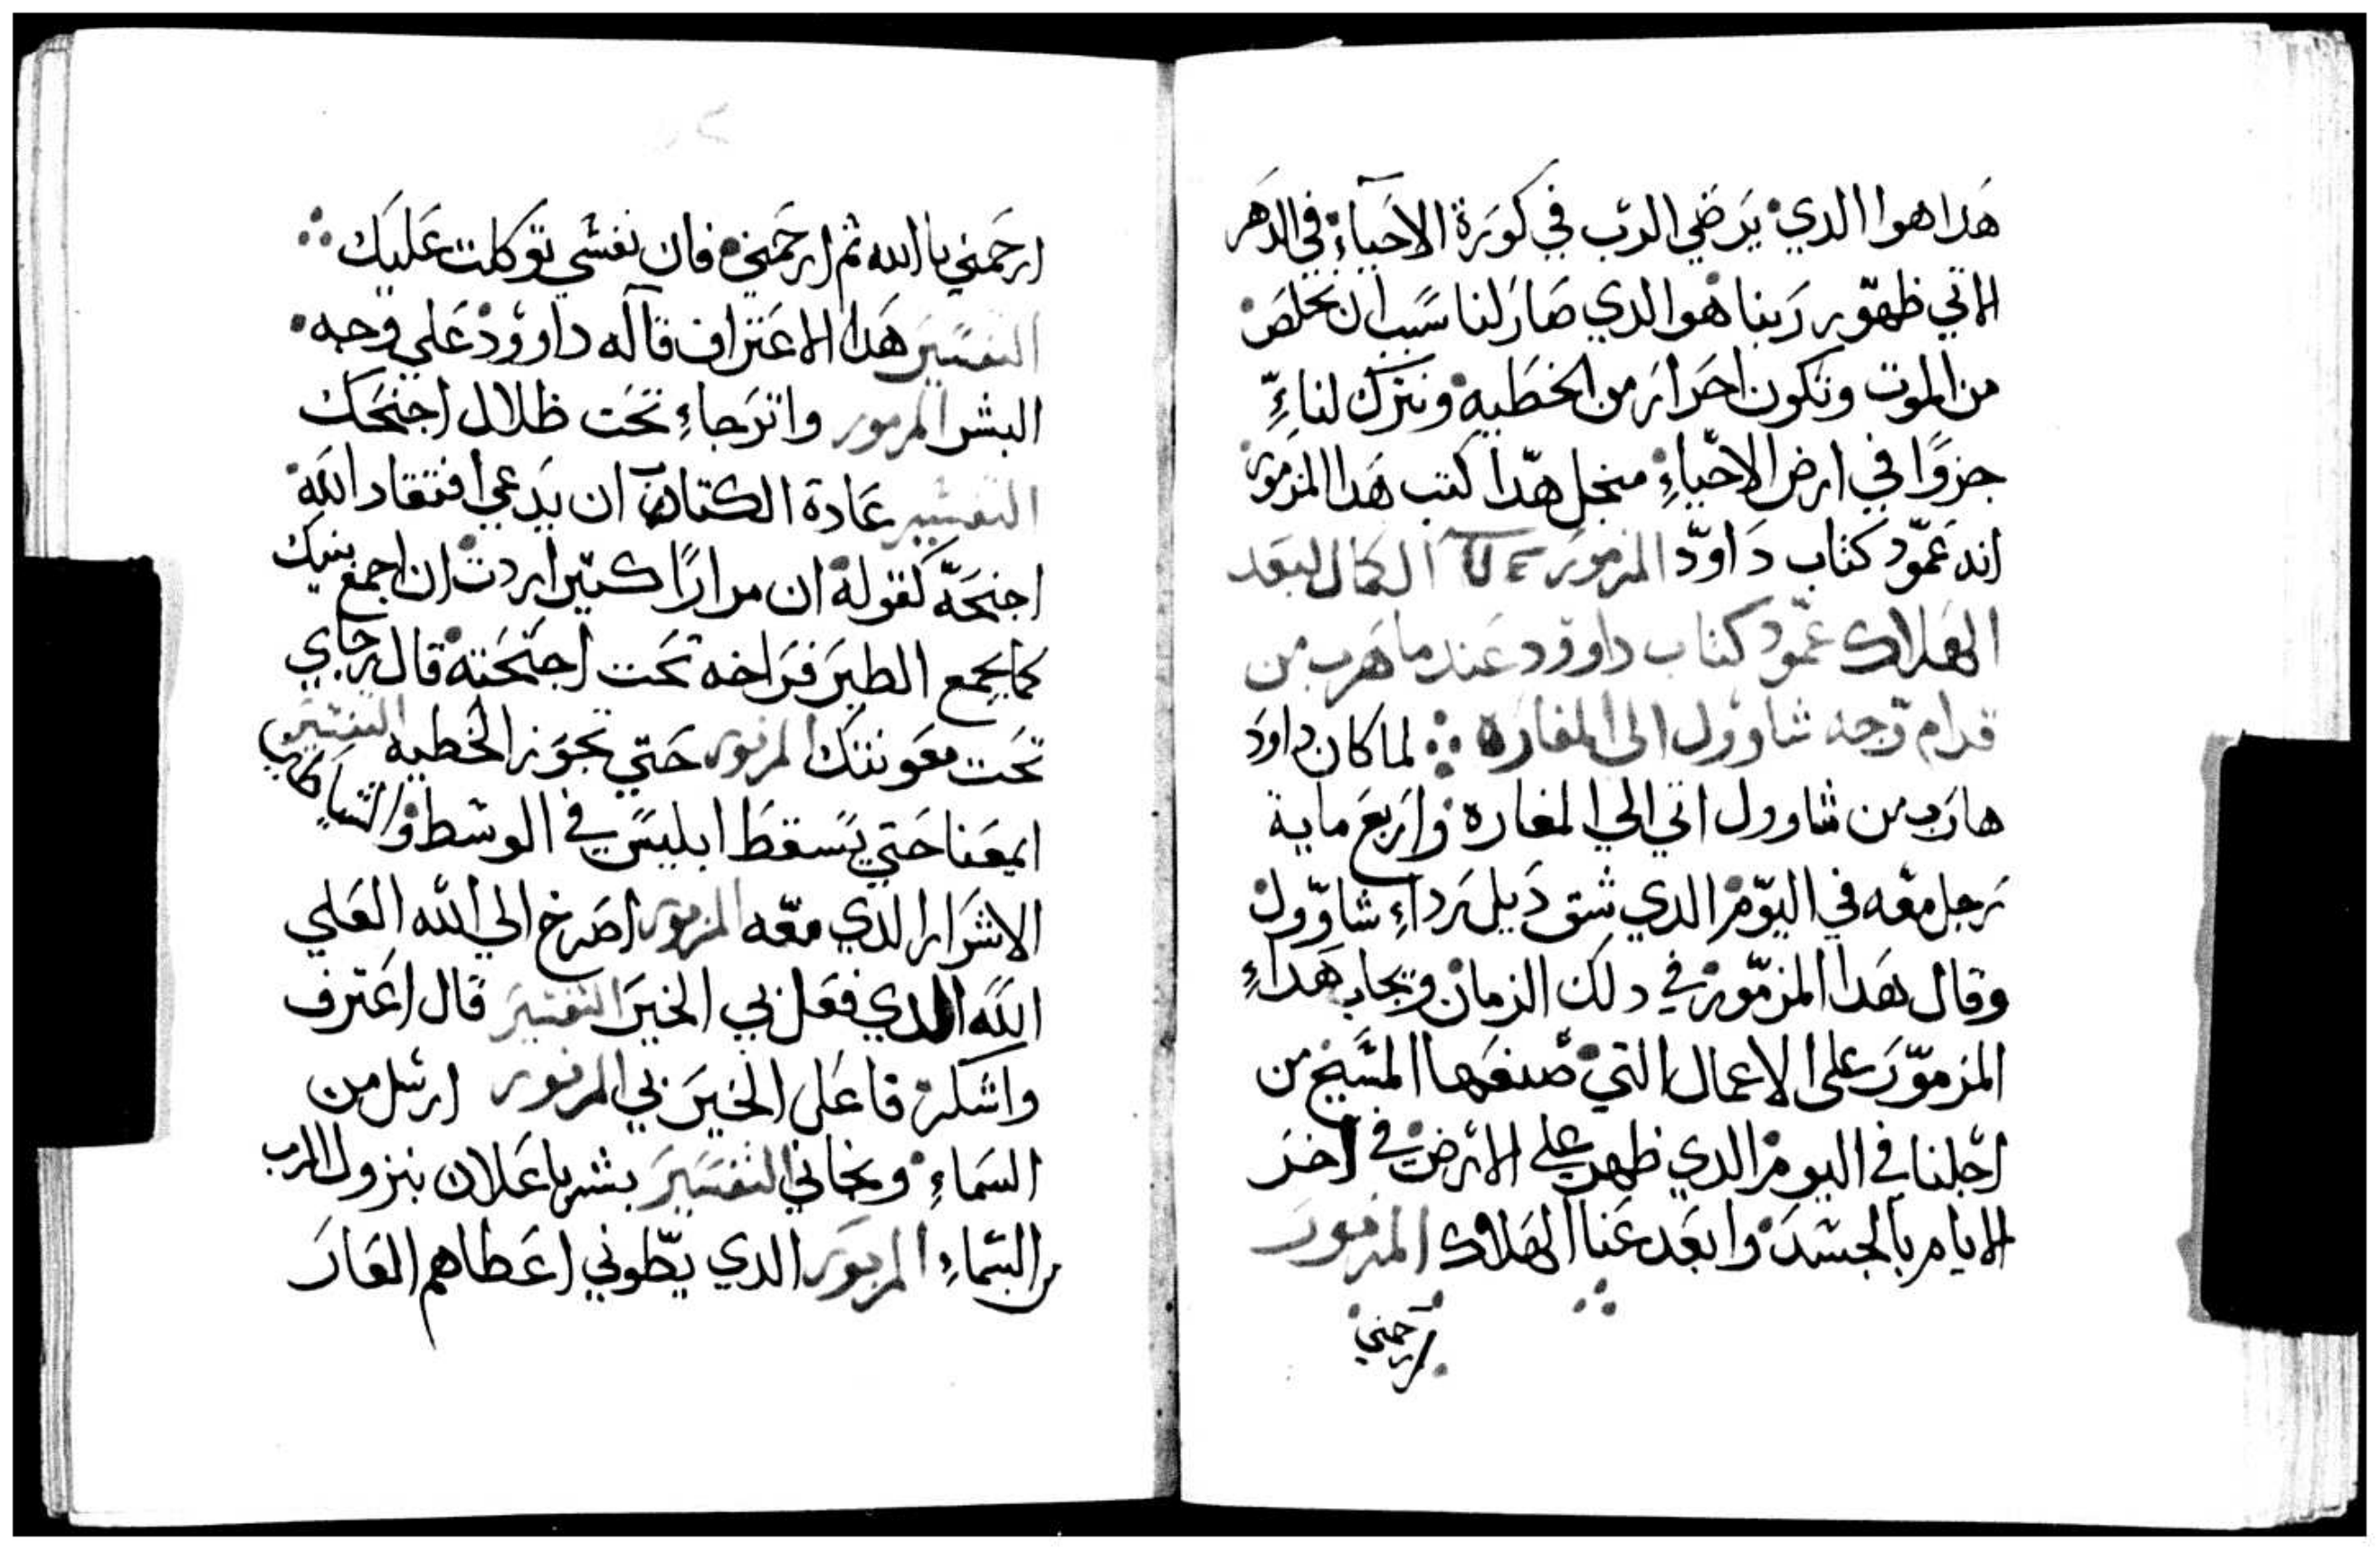 هدا هوا الدي يرضي الرب في كورة الاحياء في الدهر
الاتي ظهور ربنا هو الدي صار لنا سبب ان نخلص
من الموت ونكون احرار من الخطيه ونترك لناء
جزوا في ارض الاحياء منجل هدا كتب هدا المزمور
انه عمود كتاب داود المزمور الكمال لبعد
الهلاك عمود كتاب داوود عندما هرب من
قدام وجه شاوول الى المغاره لما كان داود
هارب من شاوول اتي الي المغاره واربع ماية
رجل معه في اليوم الدي شق ديل رداء شاوول
وقال هدا المزمور في دلك الزمان وتجاب هداء
المزمور على الاعمال التي صنعها المسيح من
اجلنا في اليوم الدي ظهر علي الارض في اخر
الايام بالجسد وابعد عنا الهلاك المزمور
ارحمني
ارحمني يا الله تم ارحمني فان نفسي توكلت عليك
التفسير هدا الاعتراف قاله داوود علي وجه
البشر المزمور واترجاء تحت ظلال اجنحتك
التفسير عادة الكتاب ان يدعي افتقاد الله
اجنحه كقوله ان مرارا كتير اردت ان اجمع بنيك
كما يجمع الطير فراخه تحت اجنحته قال رجاي
تحت معونتك المزمور حتي تجوز الخطيه التفسير
ايمعنا حتي يسقط ابليس في الوسط والشياطين
الاشرار الدي معه المزمور اصرخ الي الله العلي
الله الدي فعل بي الخير التفسير قال اعترف
واشكر فاعل الخير بي المزمور ارسل من
السماء ونجاني التفسير بشر باعلان بنزول الرب
من السماء المزمور الدي يطوني اعطاهم العار